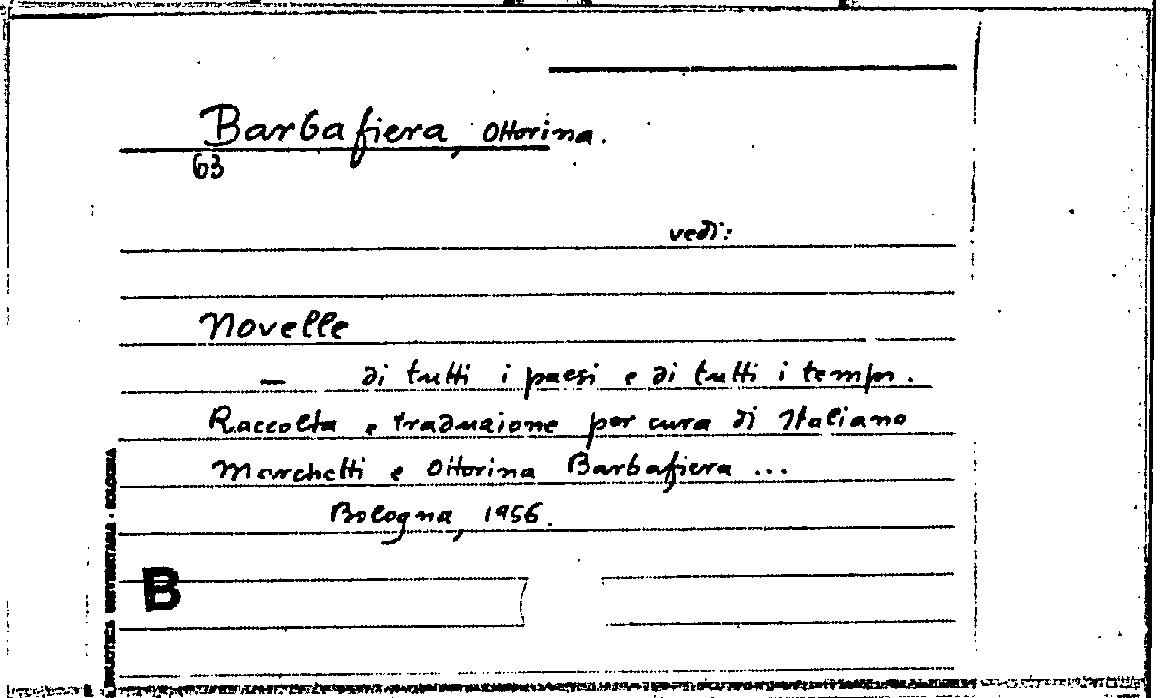 Barbafiera, Ottorina.
63
vedi:
Novelle
— di tutti i paesi e di tutti i tempi.
Raccolta e traduzione per cura di Italiano
Marchetti e Ottorina Barbafiera ...
Bologna, 1956.
B
BIBLIOTECA UNIVERSITARIA - BOLOGNA